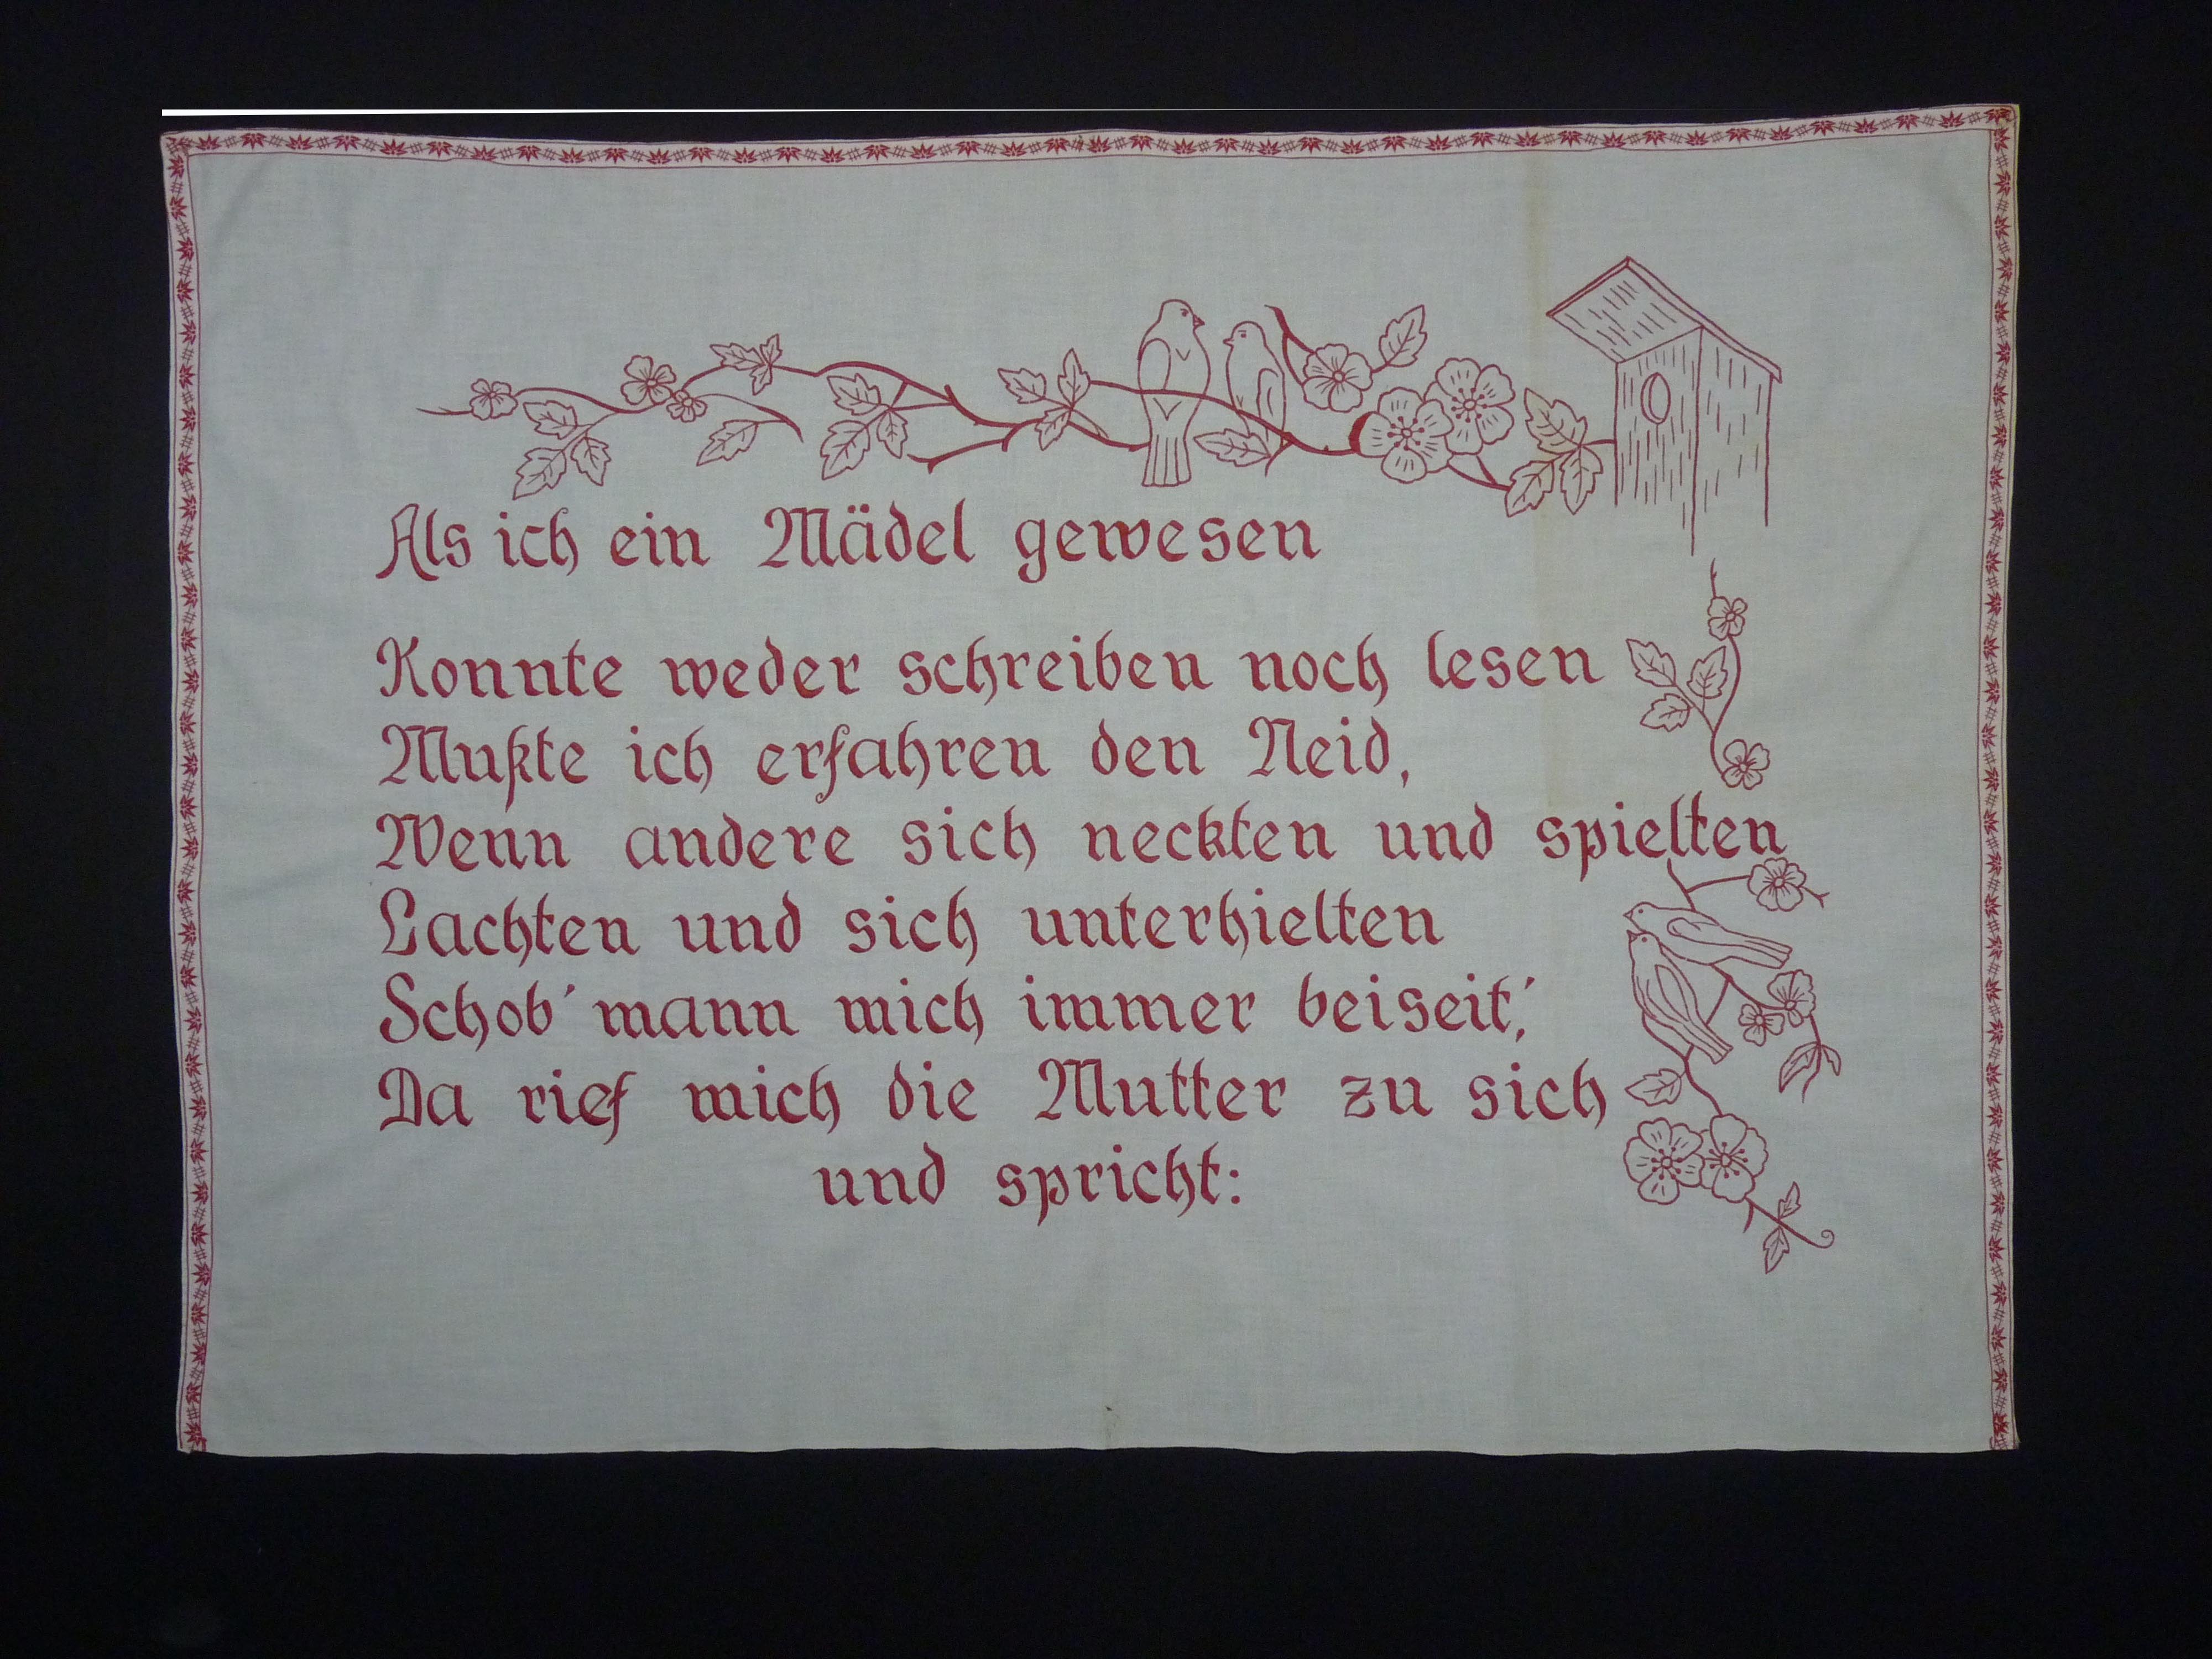 Als ich ein Mädel gewesen
Konnte weder schreiben noch lesen
Mußte ich erfahren den Neid,
Wenn andere sich neckten und spielten
Lachten und sich unterhielten
Schob' mann mich immer beiseit',
Da rief mich die Mutter zu sich
und spricht: